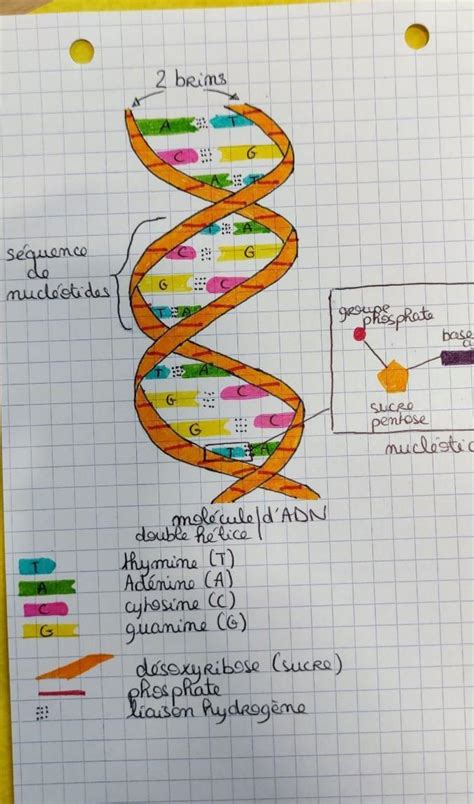 2 brins
A T
C G
A T
T A
séquence
de
nucléotides
C G
G C
T A
groupe
phosphate
base
sucre
pentose
nucléotid
T A
G C
G C
T A
molécule d'ADN
double hélice
T thymine (T)
A Adénine (A)
C cytosine (C)
G guanine (G)
désoxyribose (sucre)
phosphate
liaison hydrogène